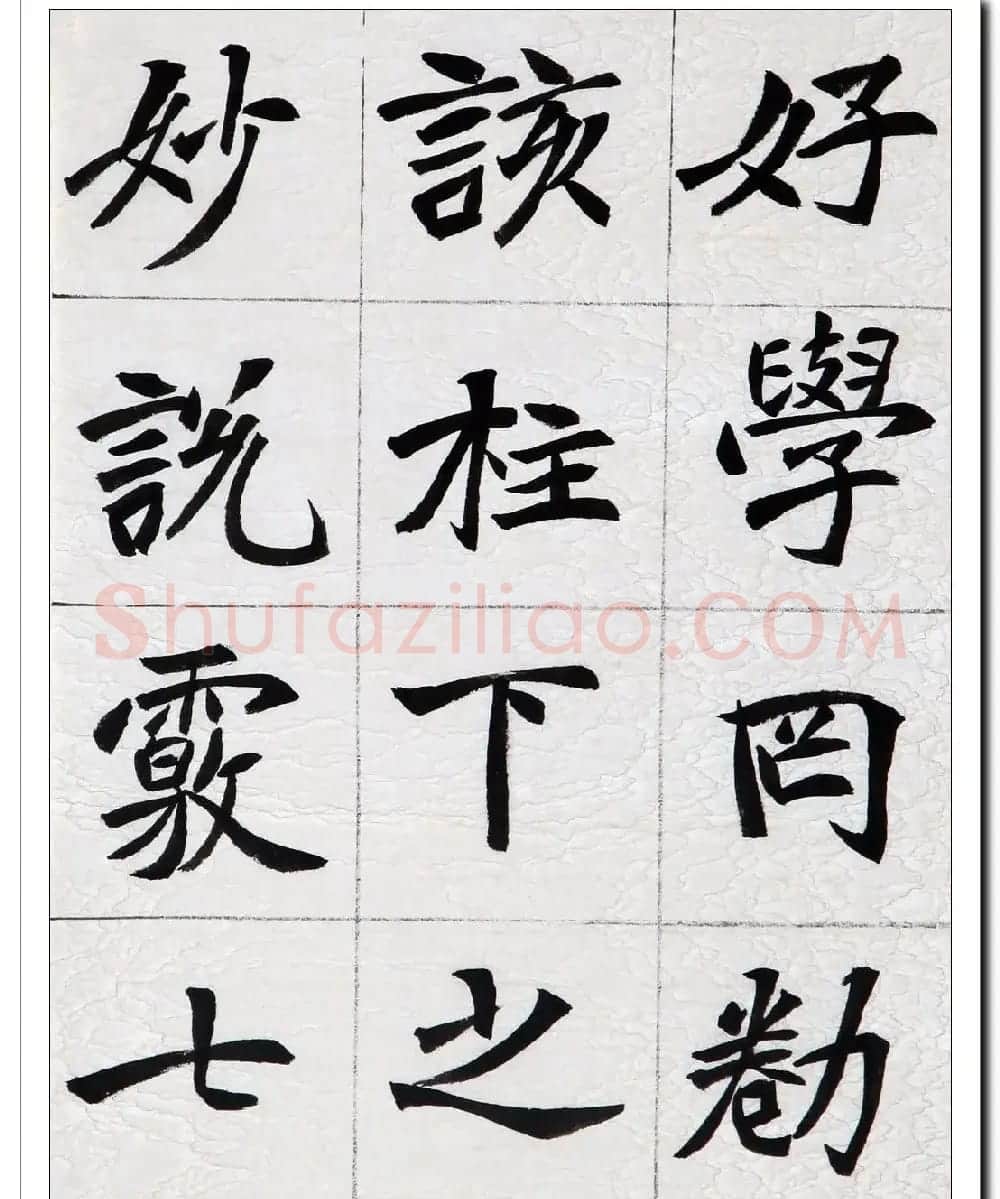 好學罔勌
該柱下之
妙說覈七
Shufaziliao.COM